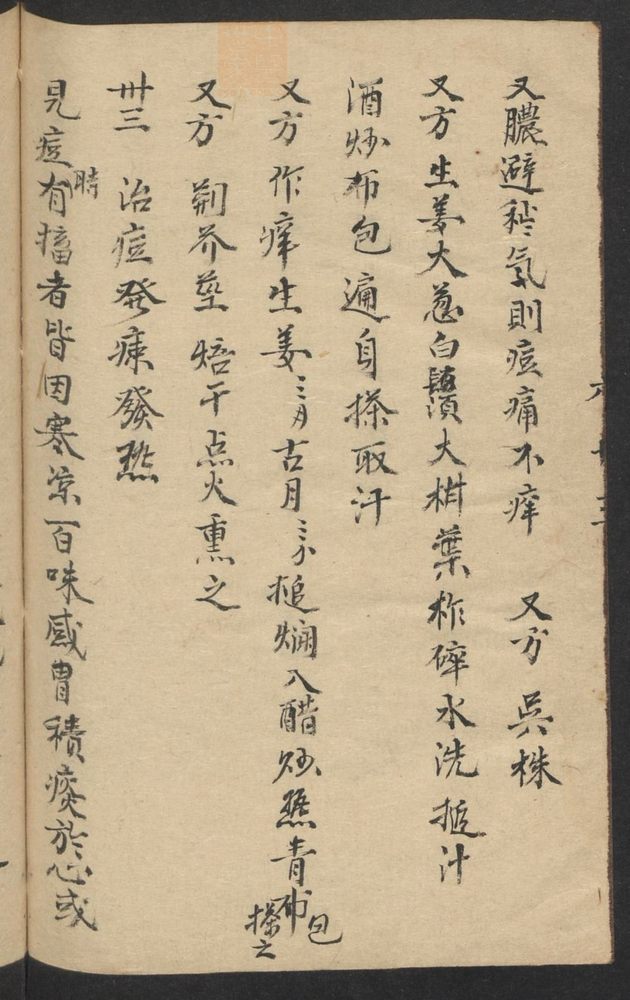 又膿避穢氣則痘痛不痒 又方 吳株
又方生姜大葱白鬚大柑葉柞碎水洗搥汁
酒炒布包遍身搽取汗
又方作痒生姜三月古月三分搥爛入醋炒熱青布包
搽之
又方 荊芥莖焙干点火熏之
卅三 治痘發癢發熱
見痘時有搐者皆因寒涼百味感冒積痰於心或